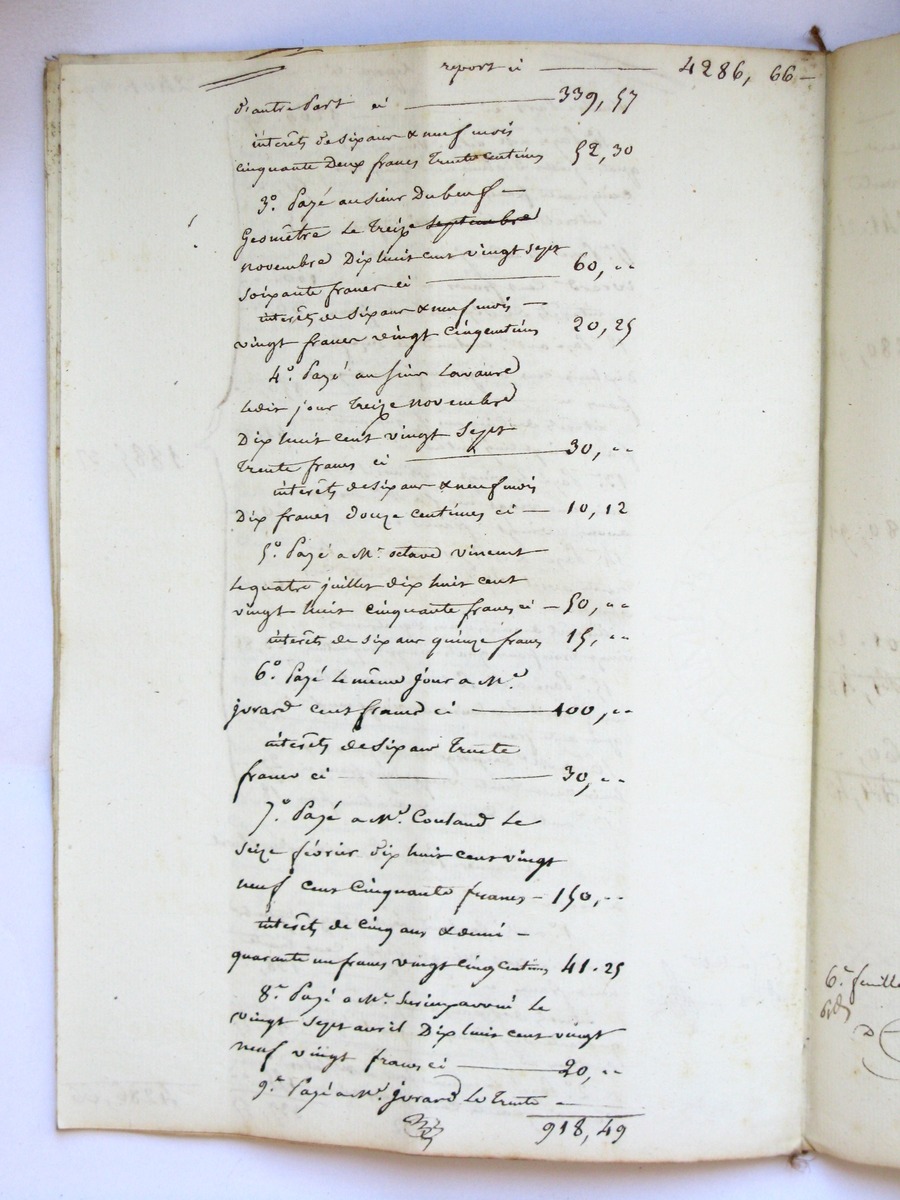 report ci 4286, 66
d'autre Part ci 339, 57
intérêts de six ans & neuf mois
cinquante Deux francs Trente centimes 52, 30
3° Payé au sieur Dubeuf
Geomêtre le Treize septembre
novembre Dix huit cent vingt sept
soixante francs ci 60, ""
intérêts de six ans & neuf mois
vingt francs vingt cinq centimes 20, 25
4° Payé au sieur Lavaure
Ledit jour Treize novembre
Dix huit cent vingt sept
Trente francs ci 30, ""
intérêts de six ans & neuf mois
Dix francs douze centimes ci 10, 12
5° Payé a Mr octave vincent
le quatre juillet dix huit cent
vingt huit cinquante francs ci 50, ""
intérêts de six ans quinze francs 15, ""
6° Payé le même jour a Me
jurard cent francs ci 100, ""
intérêts de six ans Trente
francs ci 30, ""
7° Payé a Me Couland le
seize février dix huit cent vingt
neuf cent Cinquante francs 150, ""
intérêts de cinq ans & demi
quarante un francs vingt cinq centimes 41. 25
8° Payé a Mr le
vingt sept avril Dix huit cent vingt
neuf vingt francs ci 20, ""
9° Payé a Me jurard Le Trente
918, 49
6e feuille